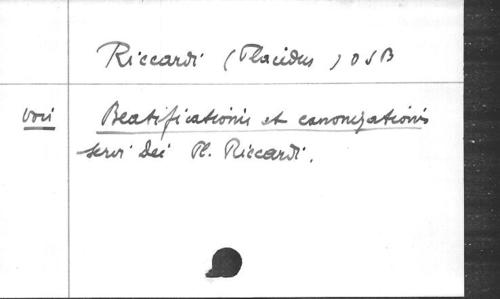 Riccardi (Placidus) OSB
Voir Beatificationis et canonizationis
servi Dei Pl. Riccardi.